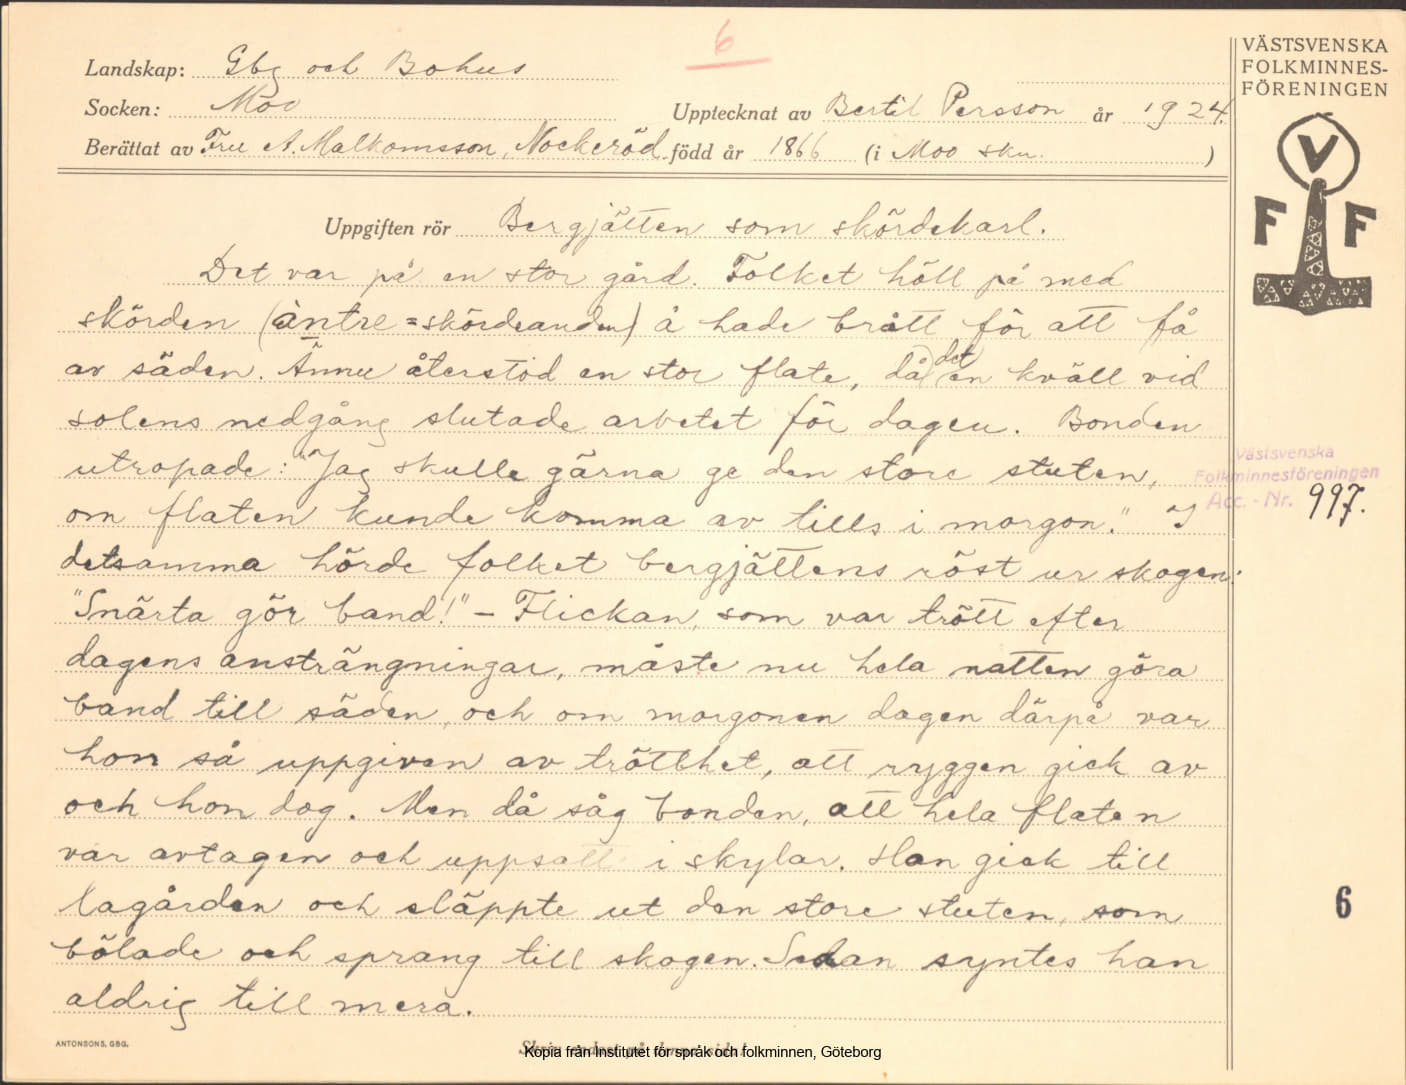 6
Landskap: Gbg och Bohus
Socken: Moo
Upptecknat av Bertil Persson år 1924.
Berättat av Fru A. Malkomsson, Nockeröd. född år 1866 (i Moo skn. )
VÄSTSVENSKA
FOLKMINNES-
FÖRENINGEN
V
F F
Uppgiften rör Bergjätten som skördekarl.
Det var på en stor gård. Folket höll på med
skörden (àntre = skördeanden) å hade brått för att få
av säden. Ännu återstod en stor flate, då det en kväll vid
solens nedgång slutade arbetet för dagen. Bonden
utropade: "Jag skulle gärna ge den store stuten,
om flaten kunde komma av tills i morgon." I
detsamma hörde folket bergjättens röst ur skogen:
"Snärta gör band!" – Flickan, som var trött efter
dagens ansträngningar, måste nu hela natten göra
band till säden, och om morgonen dagen därpå var
hon så uppgiven av trötthet, att ryggen gick av
och hon dog. Men då såg bonden, att hela flaten
var avtagen och uppsatt i skylar. Han gick till
lagården och släppte ut den store stuten, som
bölade och sprang till skogen. Sedan syntes han
aldrig till mera.
Västsvenska
Folkminnesföreningen
Acc. - Nr. 997.
6
ANTONSONS, GBG.
Skriv endast på denna sida!
Kopia från Institutet för språk och folkminnen, Göteborg